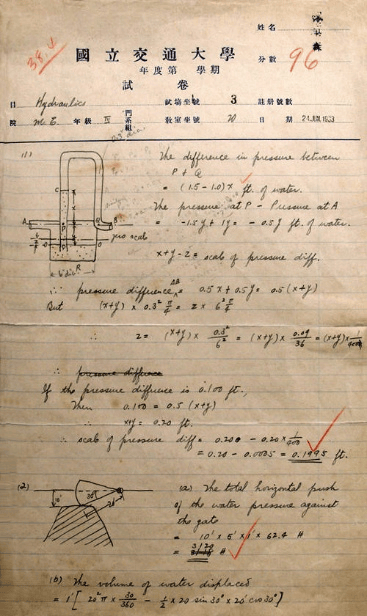 姓名
38.4
國立交通大學
分數 96
年度第 學期
試卷
目 Hydraulics 試場坐號 3 註册號數
院 M.E. 年級 IV 門系組 教室坐號 20 日期 21 JUN. 1933
(1)
The difference in pressure between
P + Q
= (1.5 - 1.0) x ft. of water.
The pressure at P - Pressure at A
= -1.5y + 1y = -0.5y ft. of water.
x+y-z = scale of pressure diff.
∴ pressure difference = 0.5x + 0.5y = 0.5(x+y)
But (x+y) x 0.3² π/4 = z x 6² π/4
z = (x+y) x 0.3²/6² = (x+y) x 0.09/36 = (x+y) x 1/400
∴ pressure difference
If the pressure difference is 0.100 ft.,
Then 0.100 = 0.5 (x+y)
∴ x+y = 0.20 ft.
∴ scale of pressure diff = 0.200 - 0.20 x 1/400
= 0.20 - 0.0005 = 0.1995 ft.
(2)
30°
20'
10'
(a) The total horizontal push
of the water pressure against
the gate
= 10' x 5' x 1' x 62.4 #
= 3120 #
(b) The volume of water displaced
= 1' [ 20² π x 30/360 - 1/2 x 20 sin 30° x 20 cos 30° ]